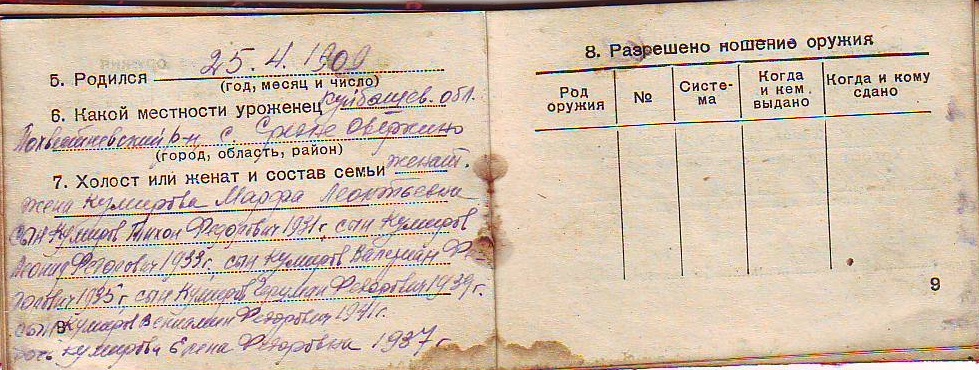 5. Родился 25.4.1900
(год, месяц и число)
6. Какой местности уроженец Куйбышев. обл.
Похвистневский р-н с. Средне Аверкино
(город, область, район)
7. Холост или женат и состав семьи женат.
жена Кумирова Марфа Леонтьевна
сын Кумиров Тихон Федорович 1931 г, сын Кумиров
Леонид Федорович 1933 г. сын Кумиров Валериан Фе-
дорович 1935 г, сын Кумиров Герман Федорович 1939 г.
сын Кумиров Вениамин Федорович 1941 г.
дочь Кумирова Елена Федоровна 1937 г
8
8. Разрешено ношение оружия
Род оружия
№
Систе-
ма
Когда
и кем
выдано
Когда и кому
сдано
9